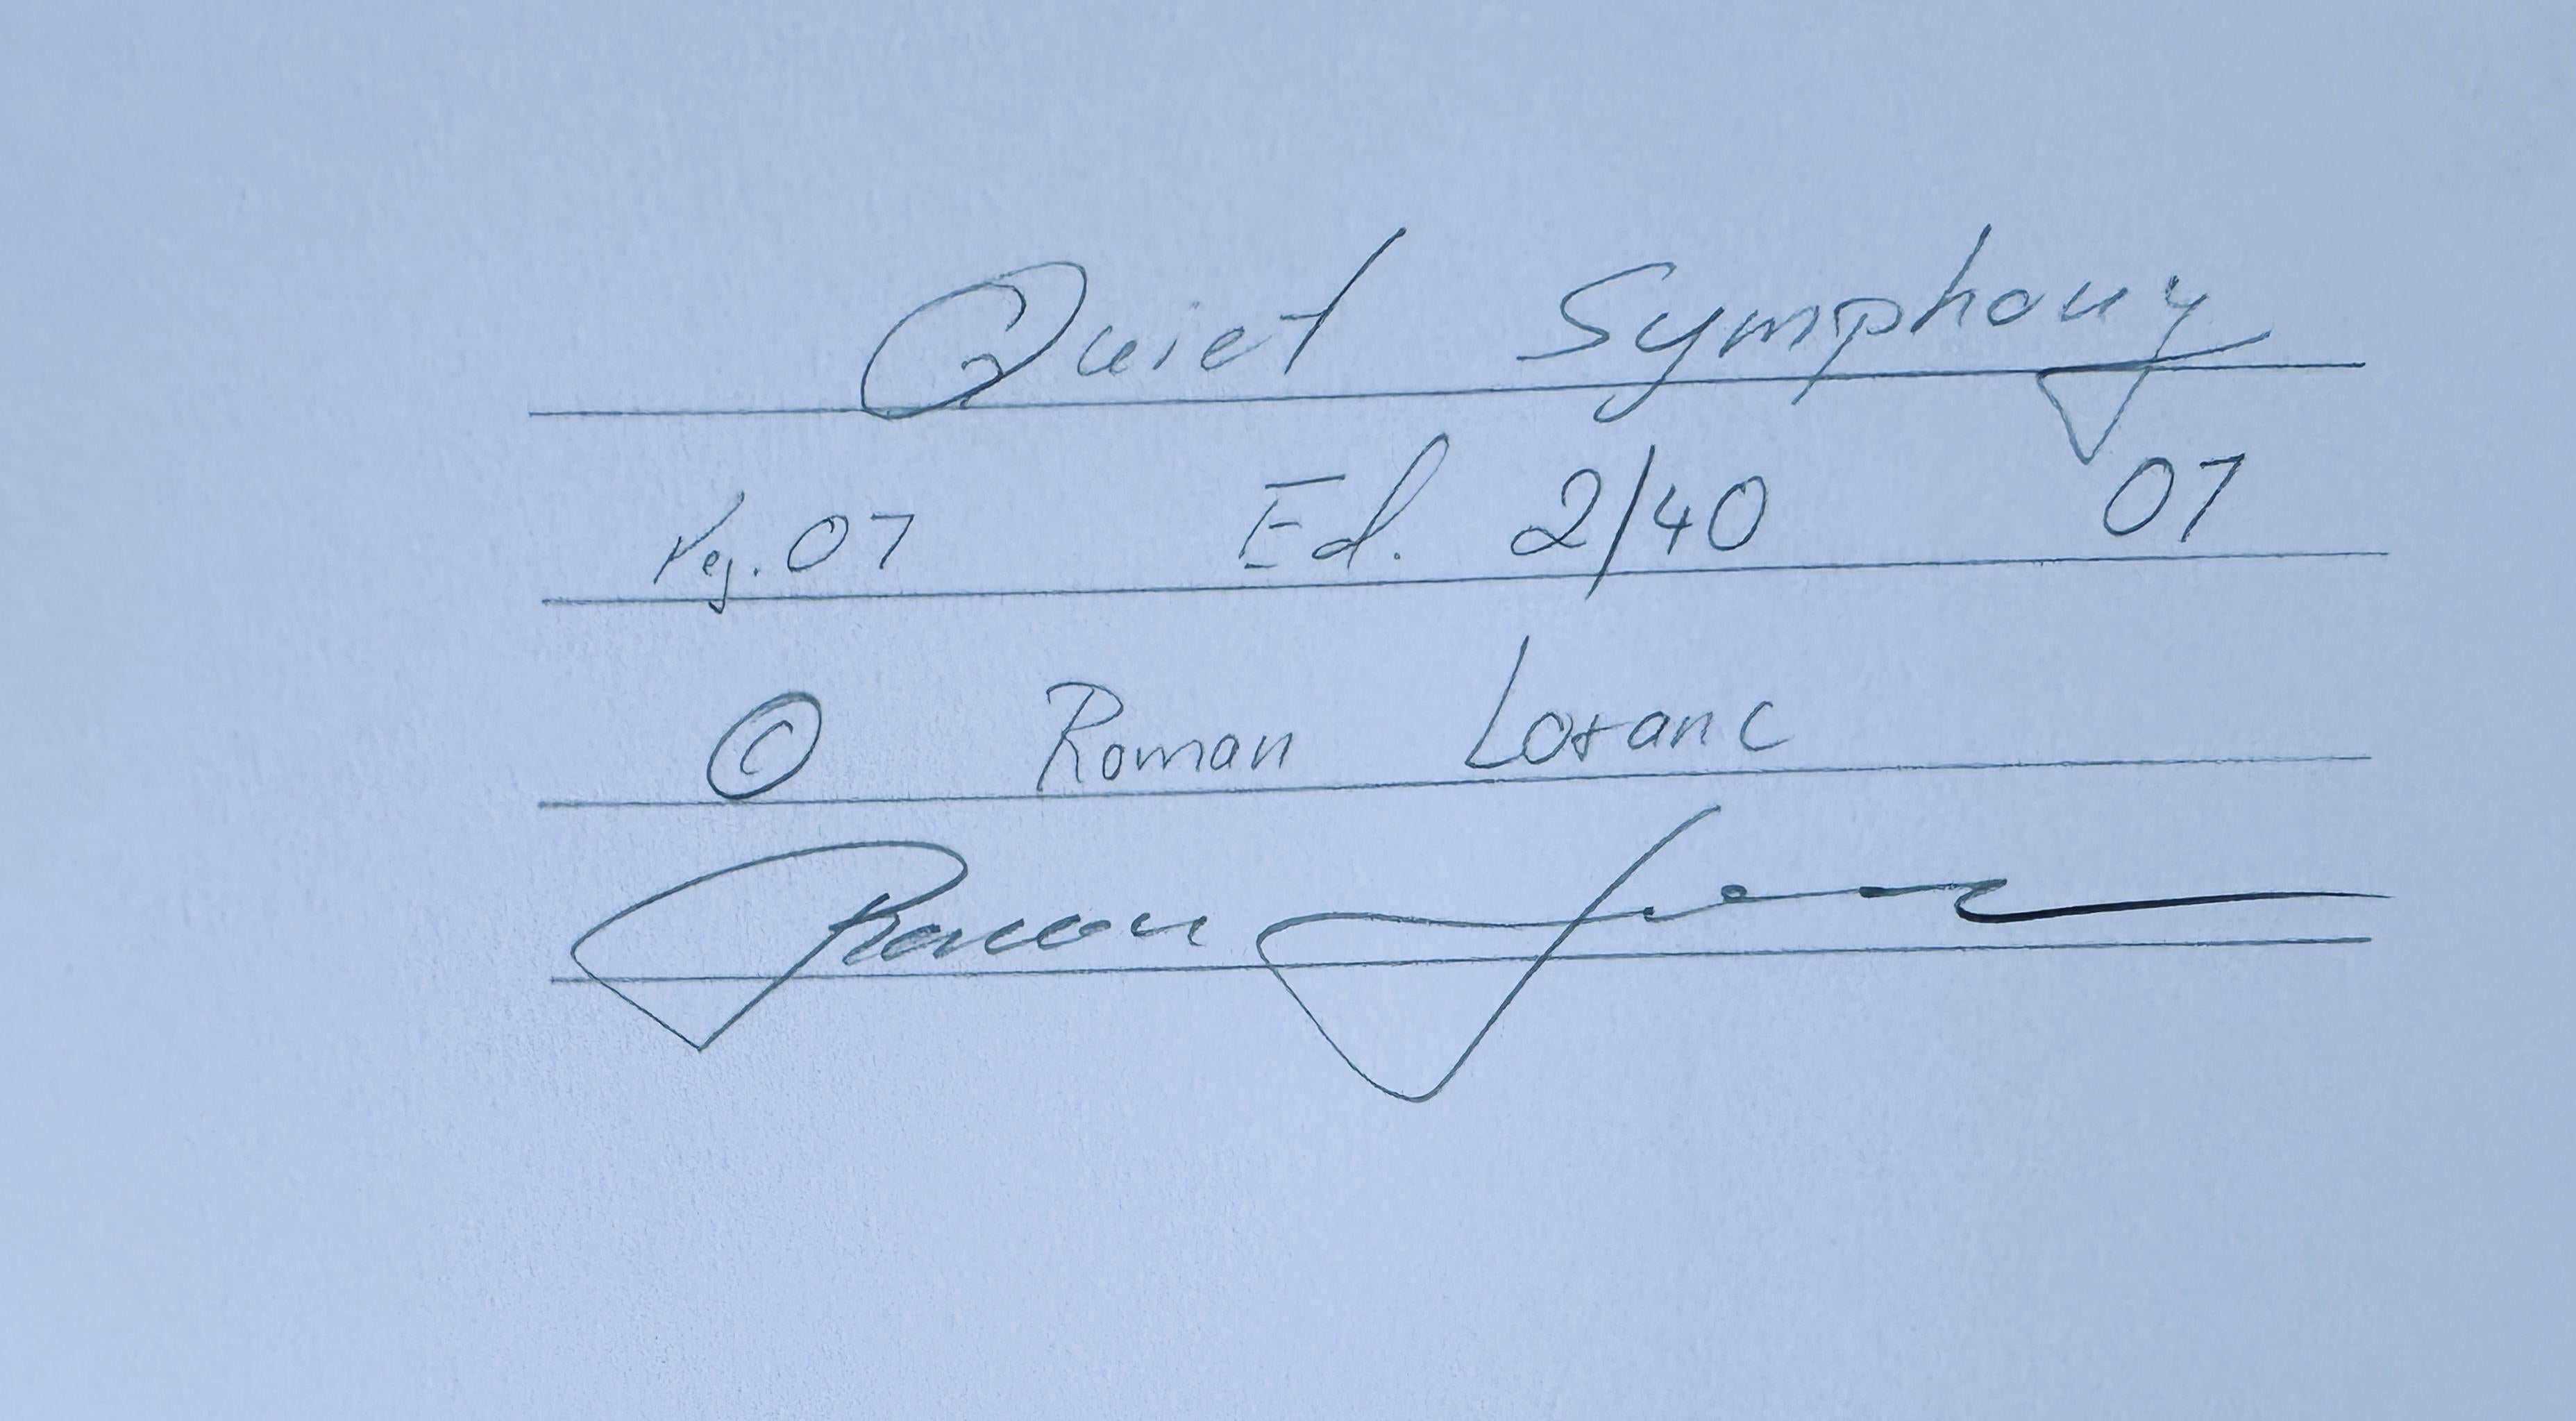 Quiet Symphony
Neg. 07 Ed. 2/40 07
© Roman Loranc
Roman Loranc